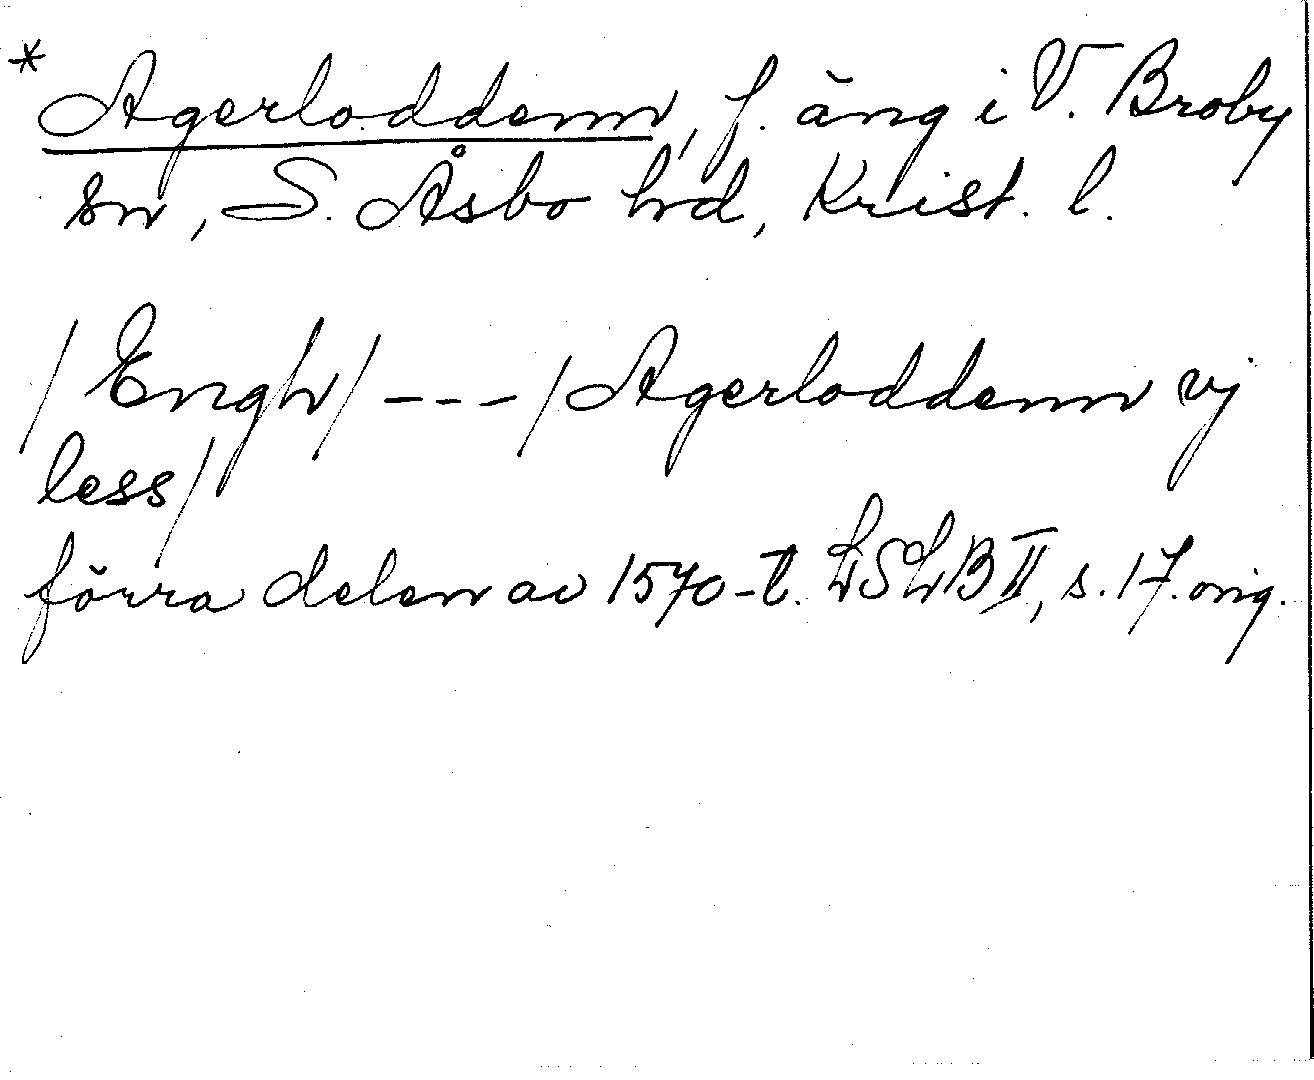 * Agerloddenn, f. äng i V. Broby
sn, S. Åsbo hrd, Krist. l.
/Engh/ --- /Agerloddenn vj
less/
förra delen av 1570-t. LSLB II, s. 17. orig.